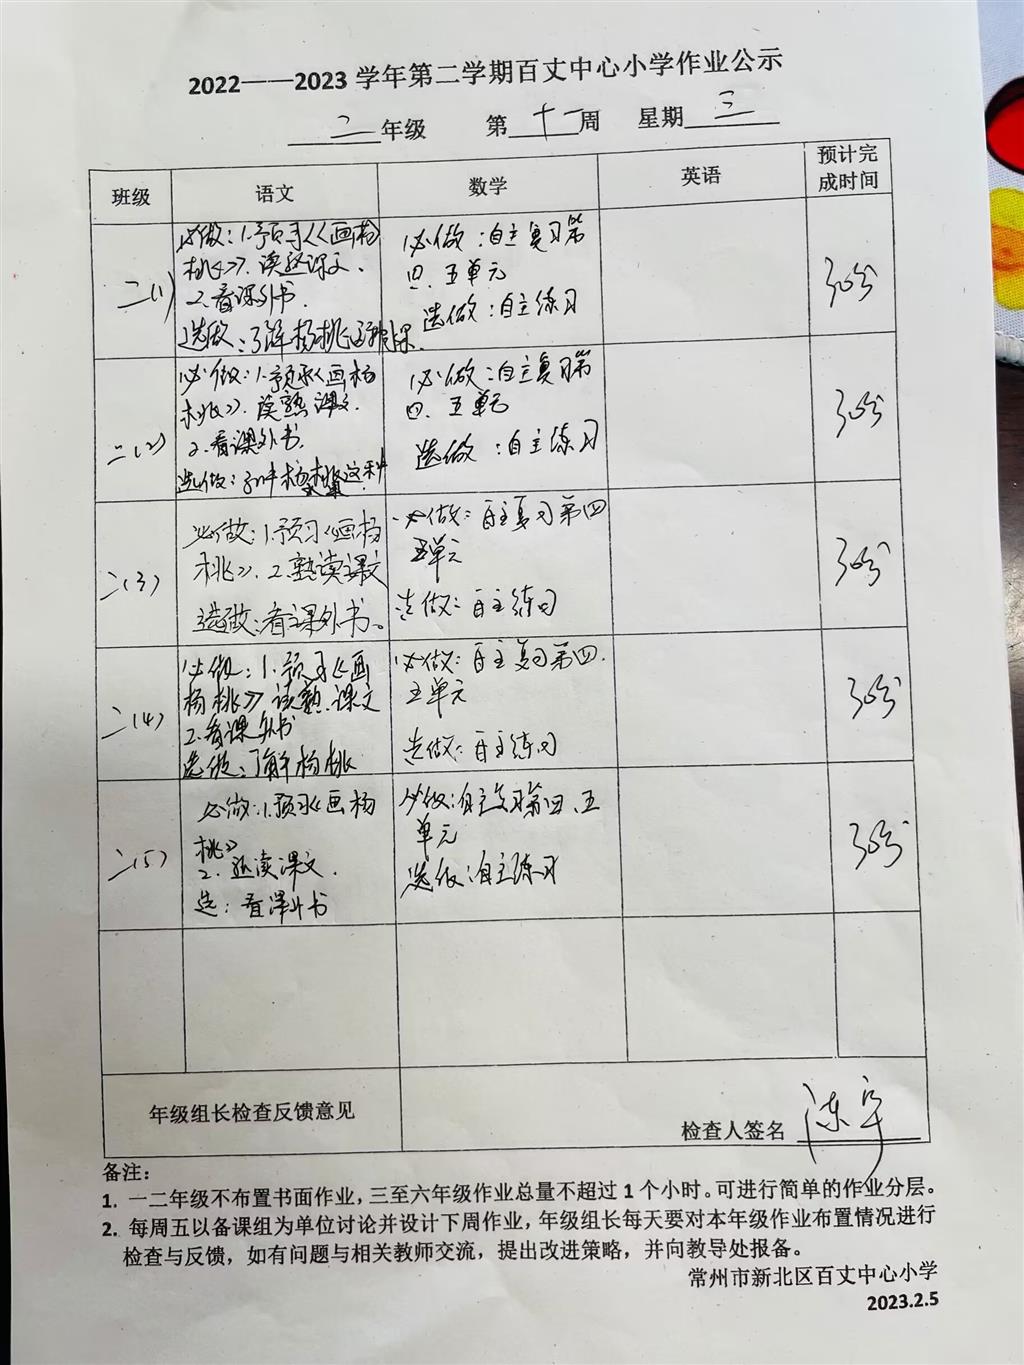 2022——2023 学年第二学期百丈中心小学作业公示
二年级 第十一周 星期三
班级 语文 数学 英语 预计完
成时间
二(1)
必做：1.预习《画杨
桃》.读熟课文.
2.看课外书.
选做：了解杨桃
必做：自主复习第
四.五单元
选做：自主练习
30分
二(2)
必做：1.预习《画杨
桃》.读熟课文.
2.看课外书.
选做：了解杨桃这种
必做：自主复习第
四.五单元
选做：自主练习
30分
二(3)
必做：1.预习《画杨
桃》.2.熟读课文
选做：看课外书。
必做：自主复习第四
五单元
选做：自主练习
30分
二(4)
必做：1.预习《画
杨桃》读熟.课文
2.看课外书
选做：了解杨桃
必做：自主复习第四.
五单元
选做：自主练习
30分
二(5)
必做：1.预习《画杨
桃》
2.读课文.
选：看课外书
必做：自主复习第四、五
单元
选做：自主练习
30分
年级组长检查反馈意见
检查人签名
备注：
1. 一二年级不布置书面作业，三至六年级作业总量不超过 1 个小时。可进行简单的作业分层。
2. 每周五以备课组为单位讨论并设计下周作业，年级组长每天要对本年级作业布置情况进行
检查与反馈，如有问题与相关教师交流，提出改进策略，并向教导处报备。
常州市新北区百丈中心小学
2023.2.5